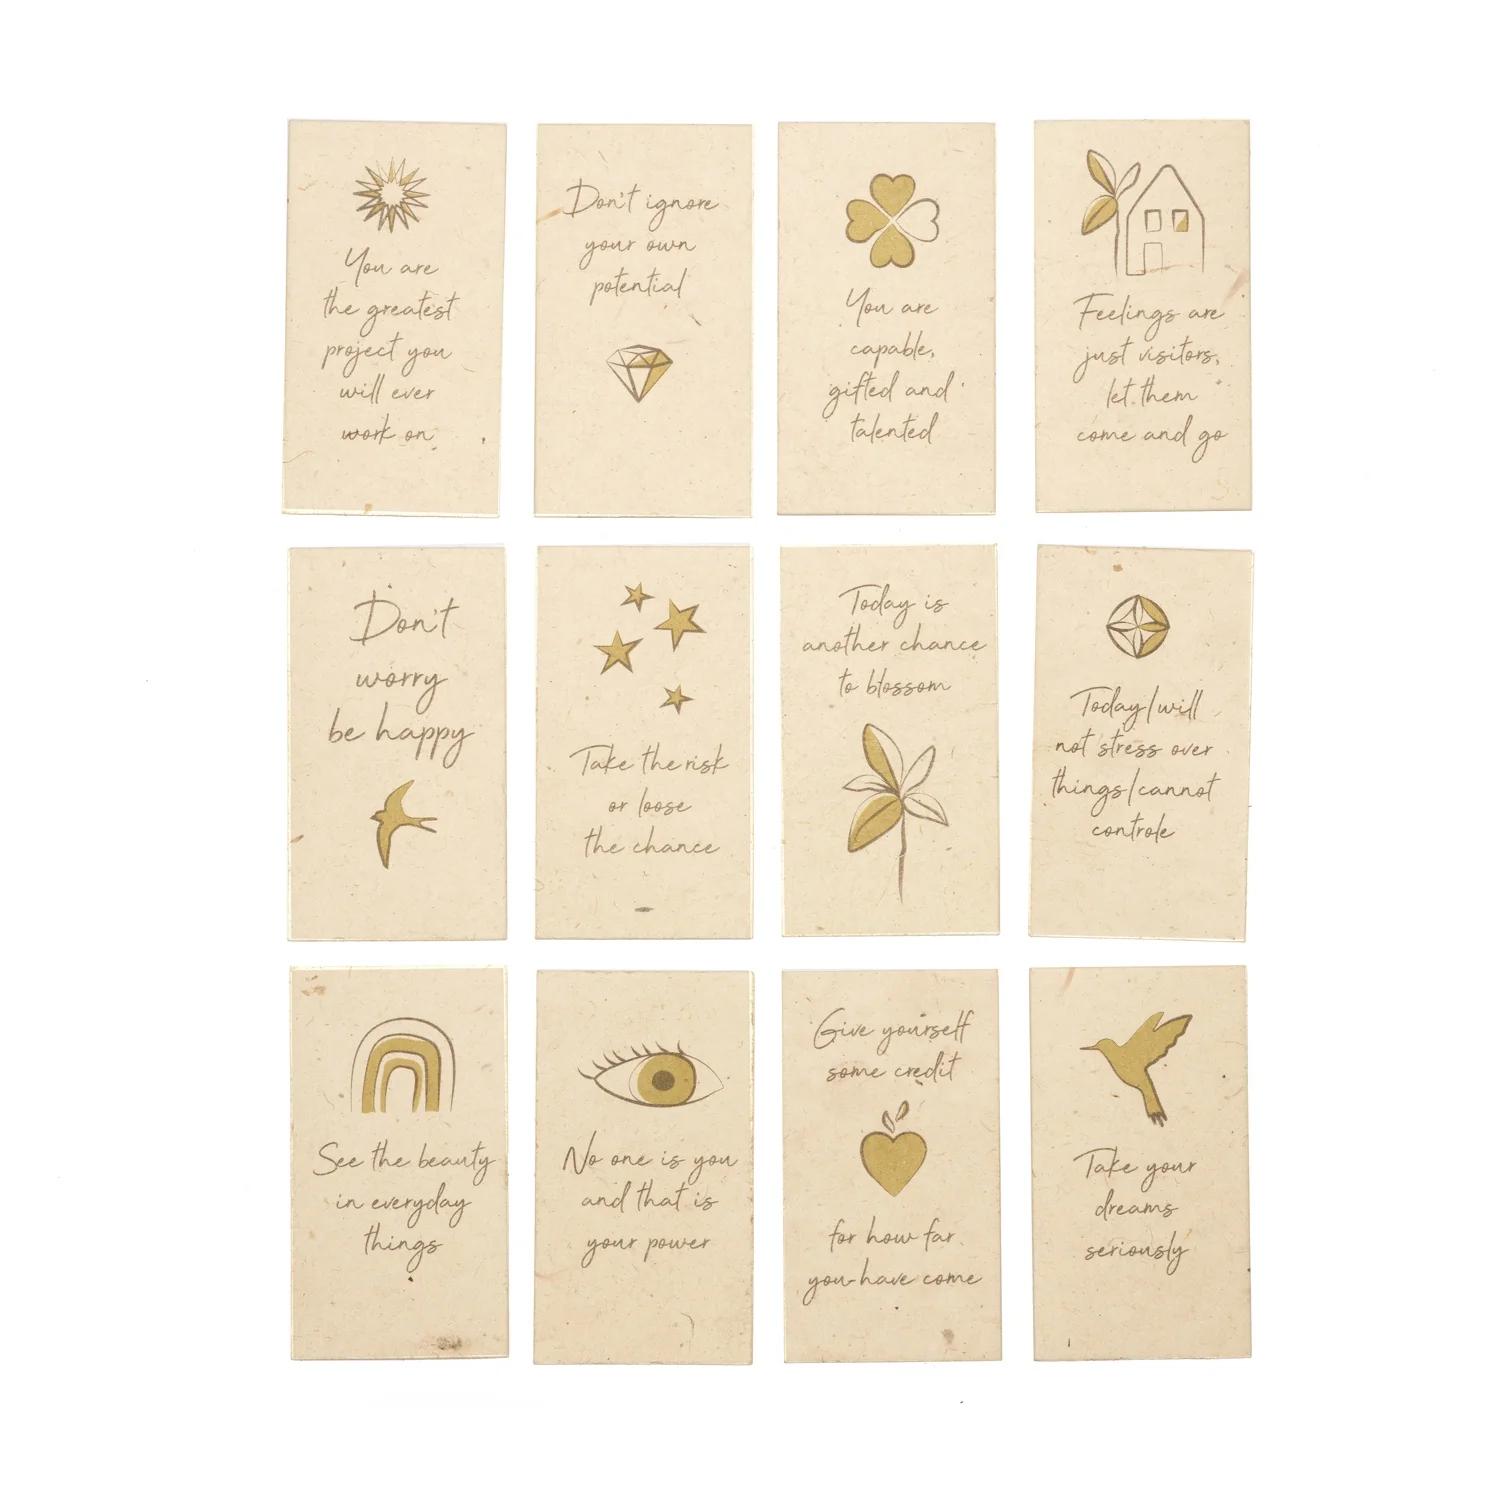 You are
the greatest
project you
will ever
work on
Don't ignore
your own
potential
You are
capable,
gifted and
talented
Feelings are
just visitors,
let them
come and go
Don't
worry
be happy
Take the risk
or loose
the chance
Today is
another chance
to blossom
Today I will
not stress over
things I cannot
controle
See the beauty
in everyday
things
No one is you
and that is
your power
Give yourself
some credit
for how far
you have come
Take your
dreams
seriously